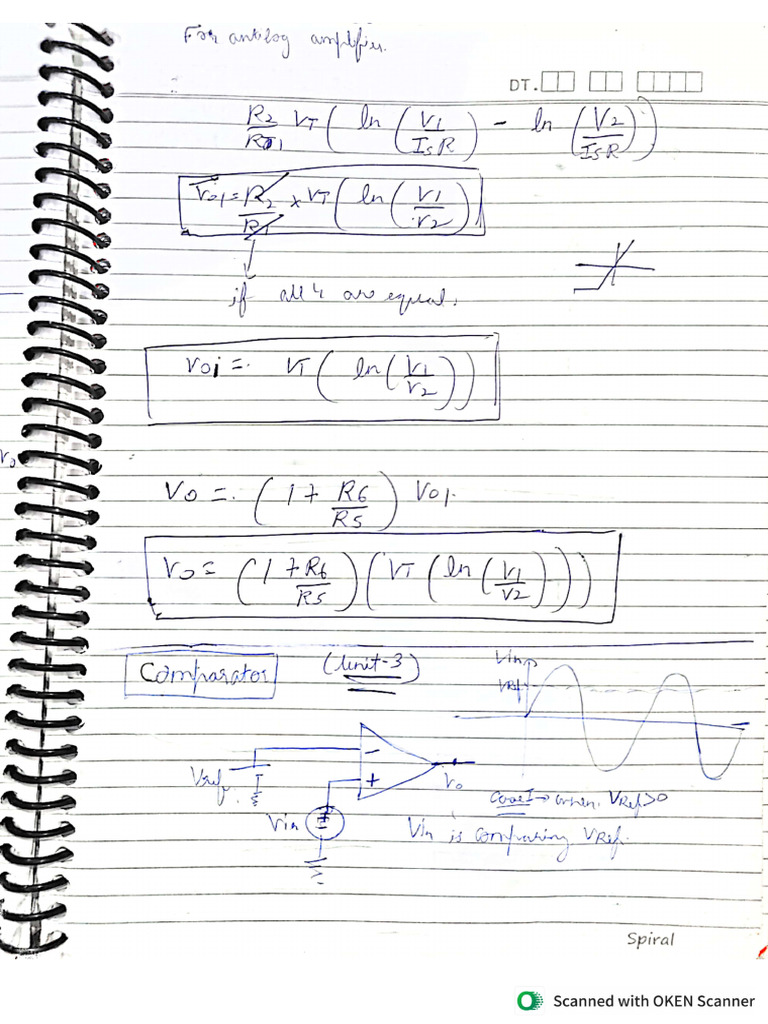 For antilog amplifier.
DT.
R2/R1 VT ( ln ( V1/IsR ) - ln ( V2/IsR ) )
Vo1 = R2/R1 x VT ( ln ( V1/V2 ) )
if all 4 are equal.
Voi = VT ( ln ( V1/V2 ) )
Vo = ( 1 + R6/R5 ) Vo1.
Vo = ( 1 + R6/R5 ) ( VT ( ln ( V1/V2 ) ) )
Comparator (Unit-3)
Vin
VRef
-
Vref
+
Vo
Vin
Case I → when VRef > 0
Vin is comparing VRef.
Spiral
Scanned with OKEN Scanner